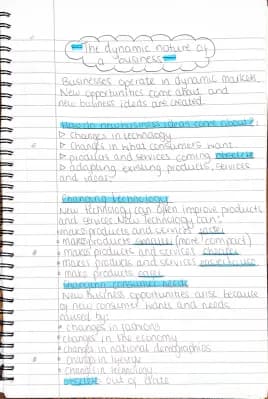 The dynamic nature of
a business
Businesses operate in dynamic markets.
New opportunities come about and
new business ideas are created.
How do new business ideas come about?
▷ changes in technology
▷ Changes in what consumers want
▷ products and services coming obsolete
▷ adapting existing products, services
and ideas.
Changing technology
New technology can often improve products
and services. New technology can:
• make products and services faster
• make products smaller (more compact)
• makes products and services cheaper
• makes products and services easier to use
• make products safer
Changing consumer needs
New business opportunities arise because
of new consumer wants and needs
caused by:
• changes in fashions
• changes in the economy
• changes in national demographics
• change in lifestyle
• changes in technology
obsolete: out of date